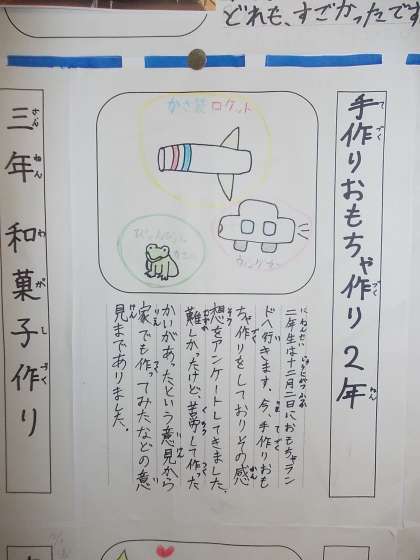 どれも、すごかったです
手作りおもちゃ作り２年
かさ袋ロケット
ぴょんぴょん
二年生は十二月二日におもちゃラン
ドへ行きます。今、手作りおも
ちゃ作りをしておりその感
想をアンケートしてきました。
難しかったけど、苦労して作った
かいがあったという意見から
家でも作ってみたなどの意
見までありました。
三年 和菓子作り